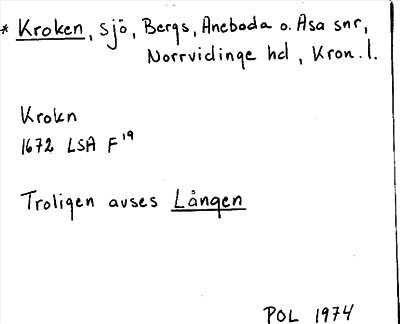 * Kroken, sjö, Bergs, Aneboda o. Asa snr,
Norrvidinge hd, Kron. l.
Krokn
1672 LSA F 19
Troligen avses Lången
POL 1974